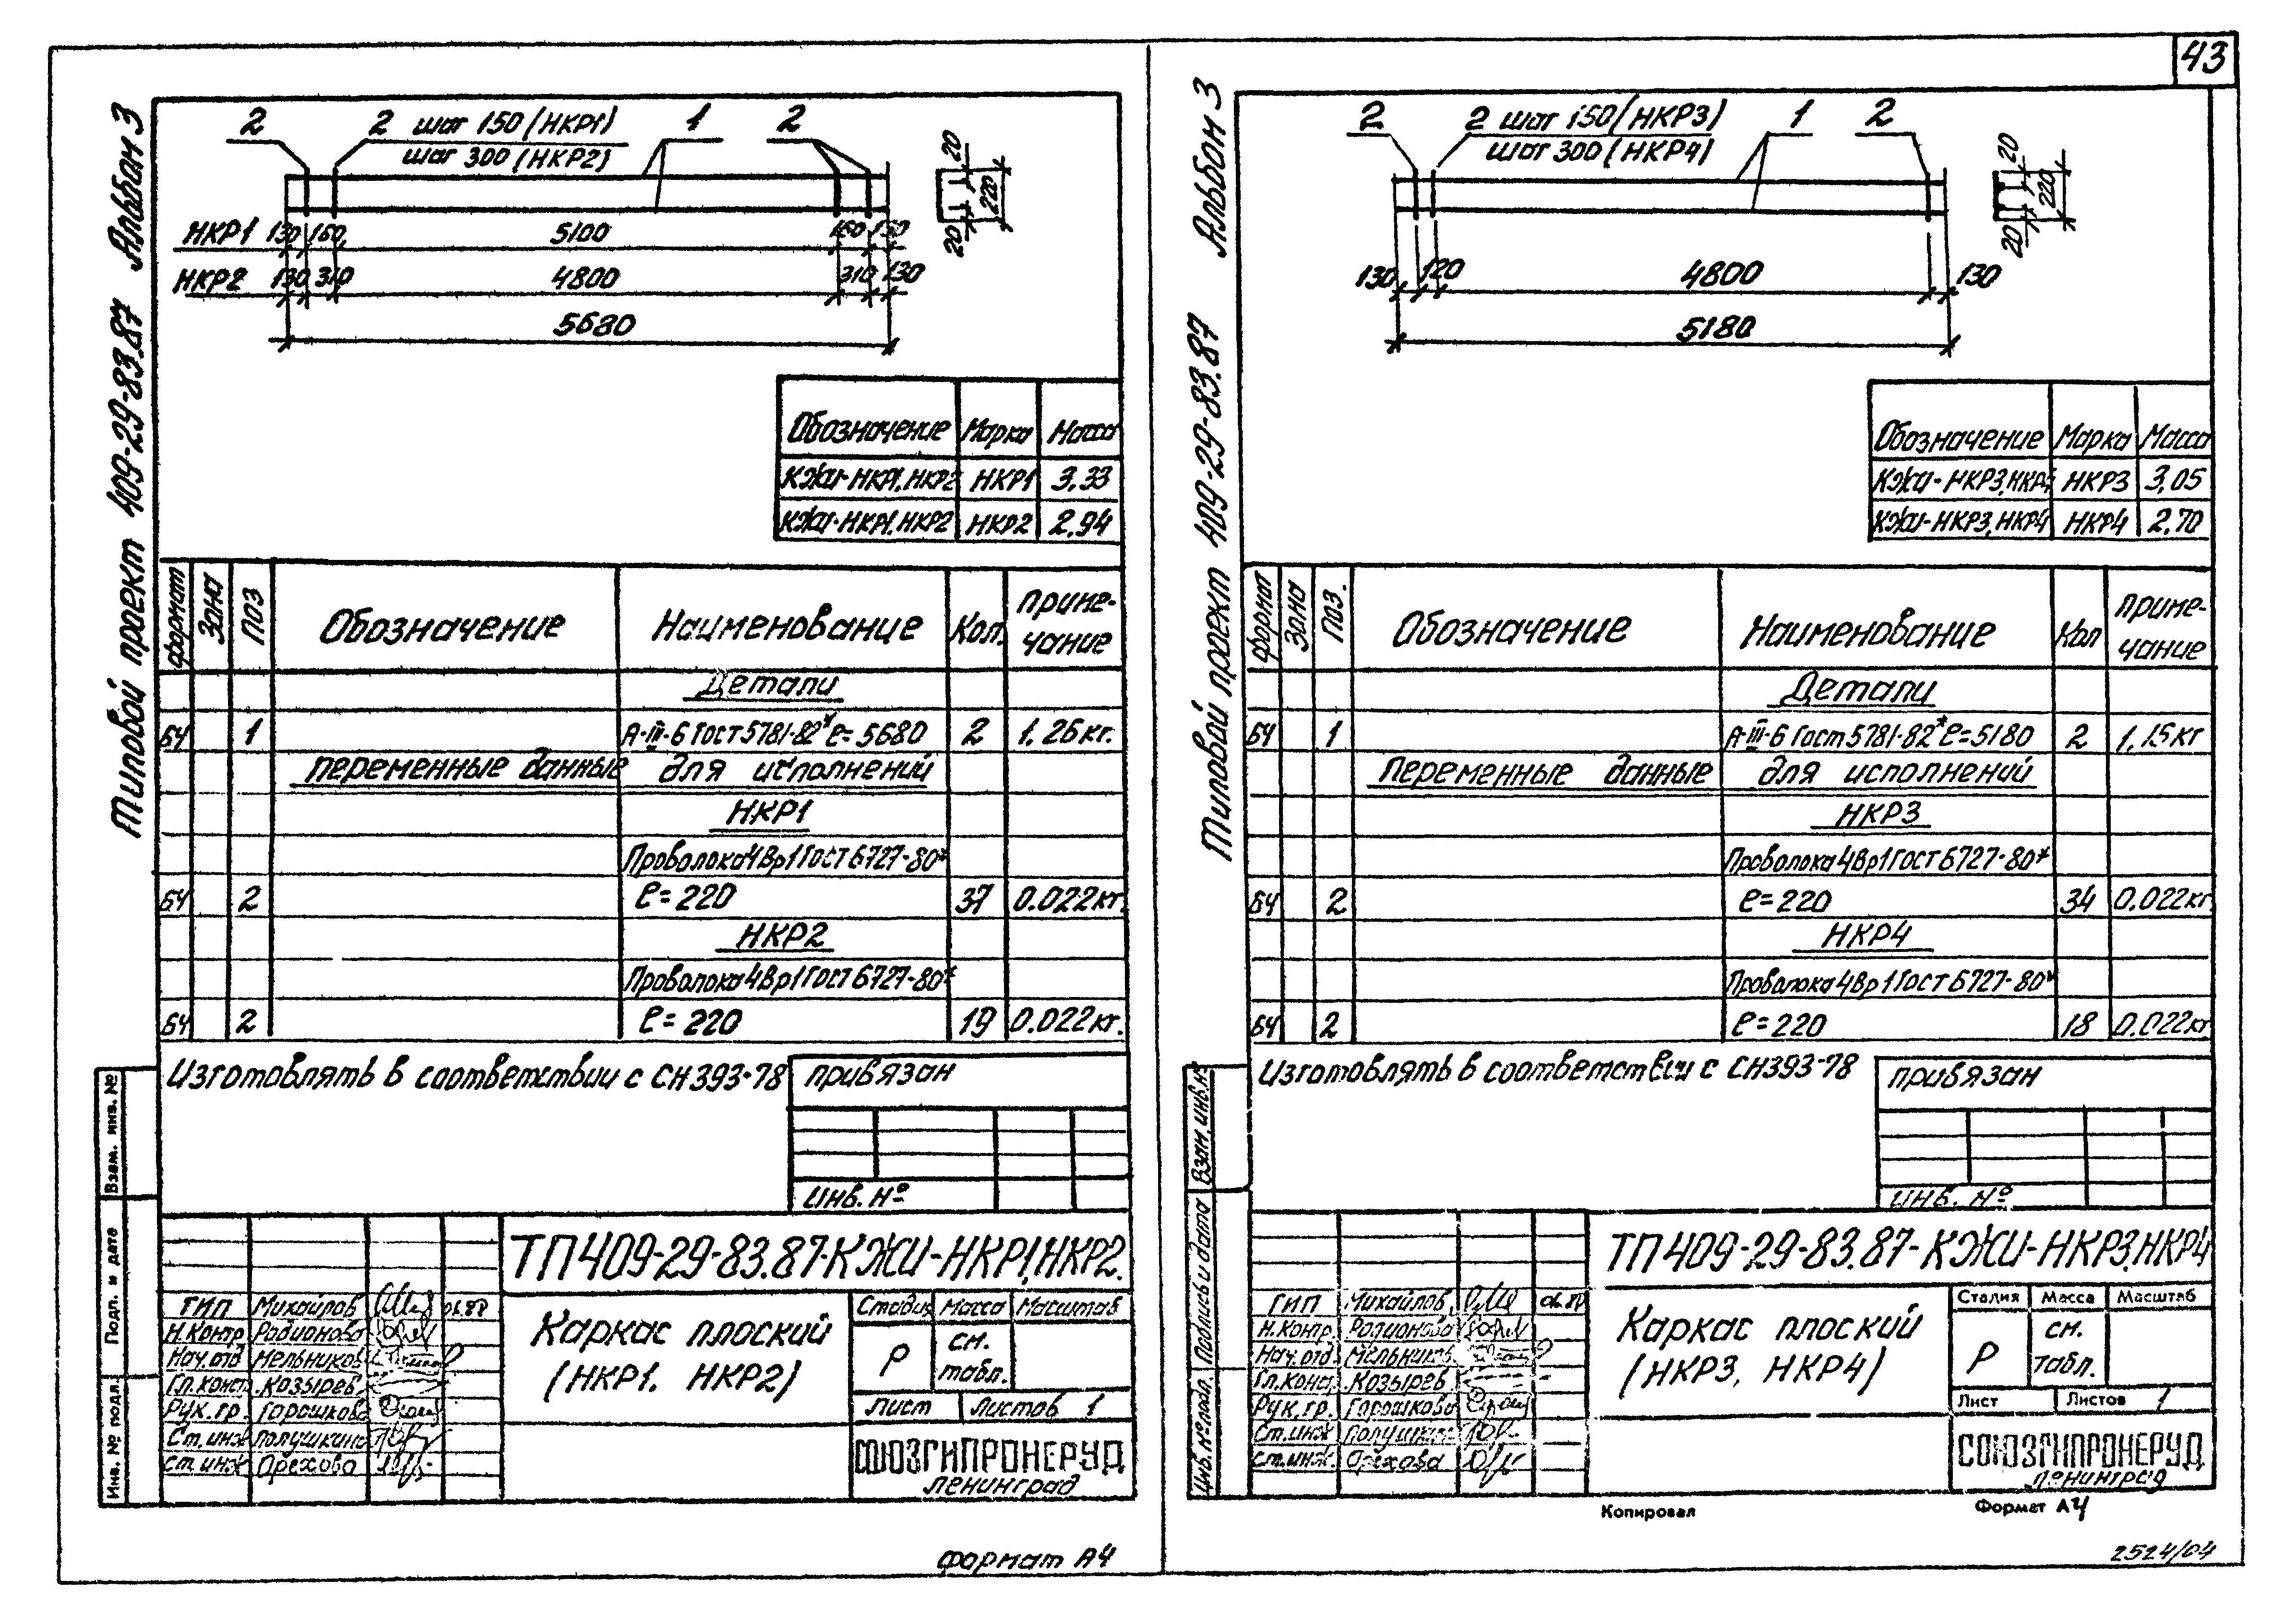 43
Альбом 3
Типовой проект 409-29-83.87
2
2 шаг 150 (НКР1)
шаг 300 (НКР2)
1
2
20
220
20
НКР1 130 160 5100 160 130
НКР2 130 310 4800 310 130
5680
Обозначение Марка Масса
КЖИ-НКР1,НКР2 НКР1 3,33
КЖИ-НКР1,НКР2 НКР2 2,94
формат Зона Поз Обозначение Наименование Кол. Приме-
чание
Детали
БЧ 1 А-III-6 Гост 5781-82* ℓ=5680 2 1,26кг.
переменные данные для исполнений
НКР1
Проволока 4Вр1 Гост 6727-80*
БЧ 2 ℓ=220 37 0.022кг.
НКР2
Проволока 4Вр1 Гост 6727-80*
БЧ 2 ℓ=220 19 0.022кг.
Изготовлять в соответствии с СН393-78
привязан
Инв. №
Взам. инв. №
Подп. и дата
Инв. № подл.
ТП409-29-83.87-КЖИ-НКР1,НКР2.
ГИП Михайлов 06.87
Н.Контр Радионова
Нач.отд Мельников
Гл.конст. Козырев
Рук.гр. Горошкова
Ст.инж Полушкина
ст.инж Орехова
Каркас плоский
(НКР1. НКР2)
Стадия Масса Масштаб
Р см.
табл.
Лист Листов 1
СОЮЗГИПРОНЕРУД
ленинград
формат А4
Альбом 3
Типовой проект 409-29-83.87
2
2 шаг 150 (НКР3)
шаг 300 (НКР4)
1
2
20
220
20
130 120 4800 130
5180
Обозначение Марка Масса
КЖИ-НКР3,НКР4 НКР3 3,05
КЖИ-НКР3,НКР4 НКР4 2,70
формат Зона Поз. Обозначение Наименование Кол приме-
чание
Детали
БЧ 1 А-III-6 Гост 5781-82* ℓ=5180 2 1,15кг
Переменные данные для исполнений
НКР3
Проволока 4Вр1 Гост 6727-80*
БЧ 2 ℓ=220 34 0.022кг
НКР4
Проволока 4Вр1 Гост 6727-80*
БЧ 2 ℓ=220 18 0.022кг
Изготовлять в соответствии с СН393-78
привязан
инв. №
Взам.инв.№
Подпись и дата
Инв.№подл.
ТП409-29-83.87-КЖИ-НКР3,НКР4
ГИП Михайлов 06.87
Н.Контр. Радионова
Нач.отд. Мельников
Гл.конст. Козырев
Рук.гр. Горошкова
Ст.инж Полушкина
ст.инж. Орехова
Каркас плоский
(НКР3, НКР4)
Стадия Масса Масштаб
Р см.
табл.
Лист Листов 1
СОЮЗГИПРОНЕРУД
ленинград
Копировал
Формат А4
2524/04